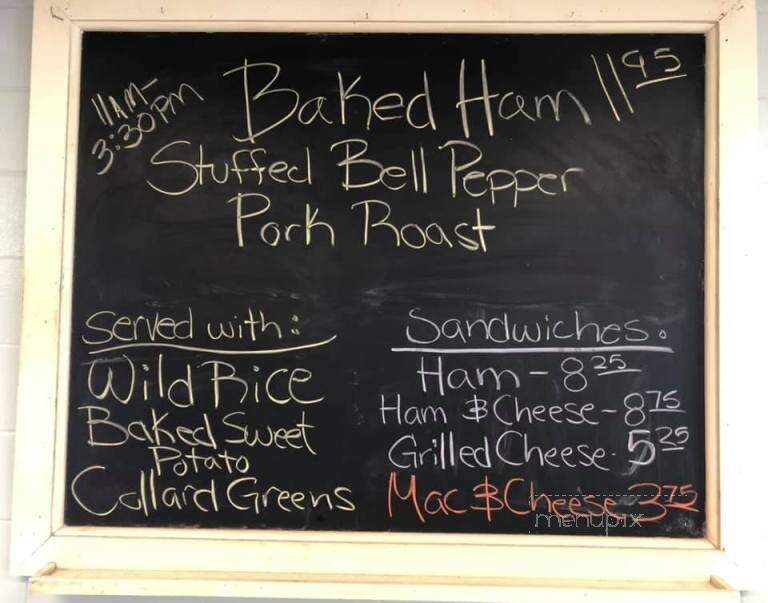 11AM-
3:30pm
Baked Ham 11 95
Stuffed Bell Pepper
Pork Roast
Served with:
Wild Rice
Baked Sweet
Potato
Collard Greens
Sandwiches:
Ham - 8 25
Ham & Cheese - 8 75
Grilled Cheese - 5 25
Mac & Cheese 3 75
menupix